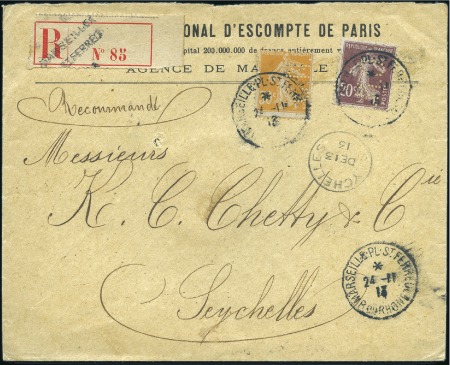 MARSEILLE
ST FERREOL
R
N° 85
ONAL D'ESCOMPTE DE PARIS
Capital 200.000.000 de francs entièrement
AGENCE DE MA
MARSEILLE-PL. ST FERREOL
24-11
13
20c
Recommandé
SEYCHELLES
DE 13
13
Messieurs
K. C. Chetty & Cie
Seychelles
MARSEILLE-PL. ST FERREOL
*
24-11
13
BCHES DU RHONE